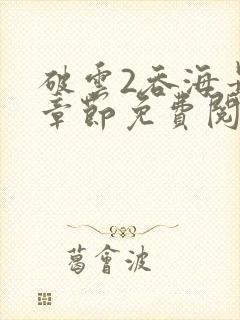 破雲2吞海
章節免費閱
葛會波